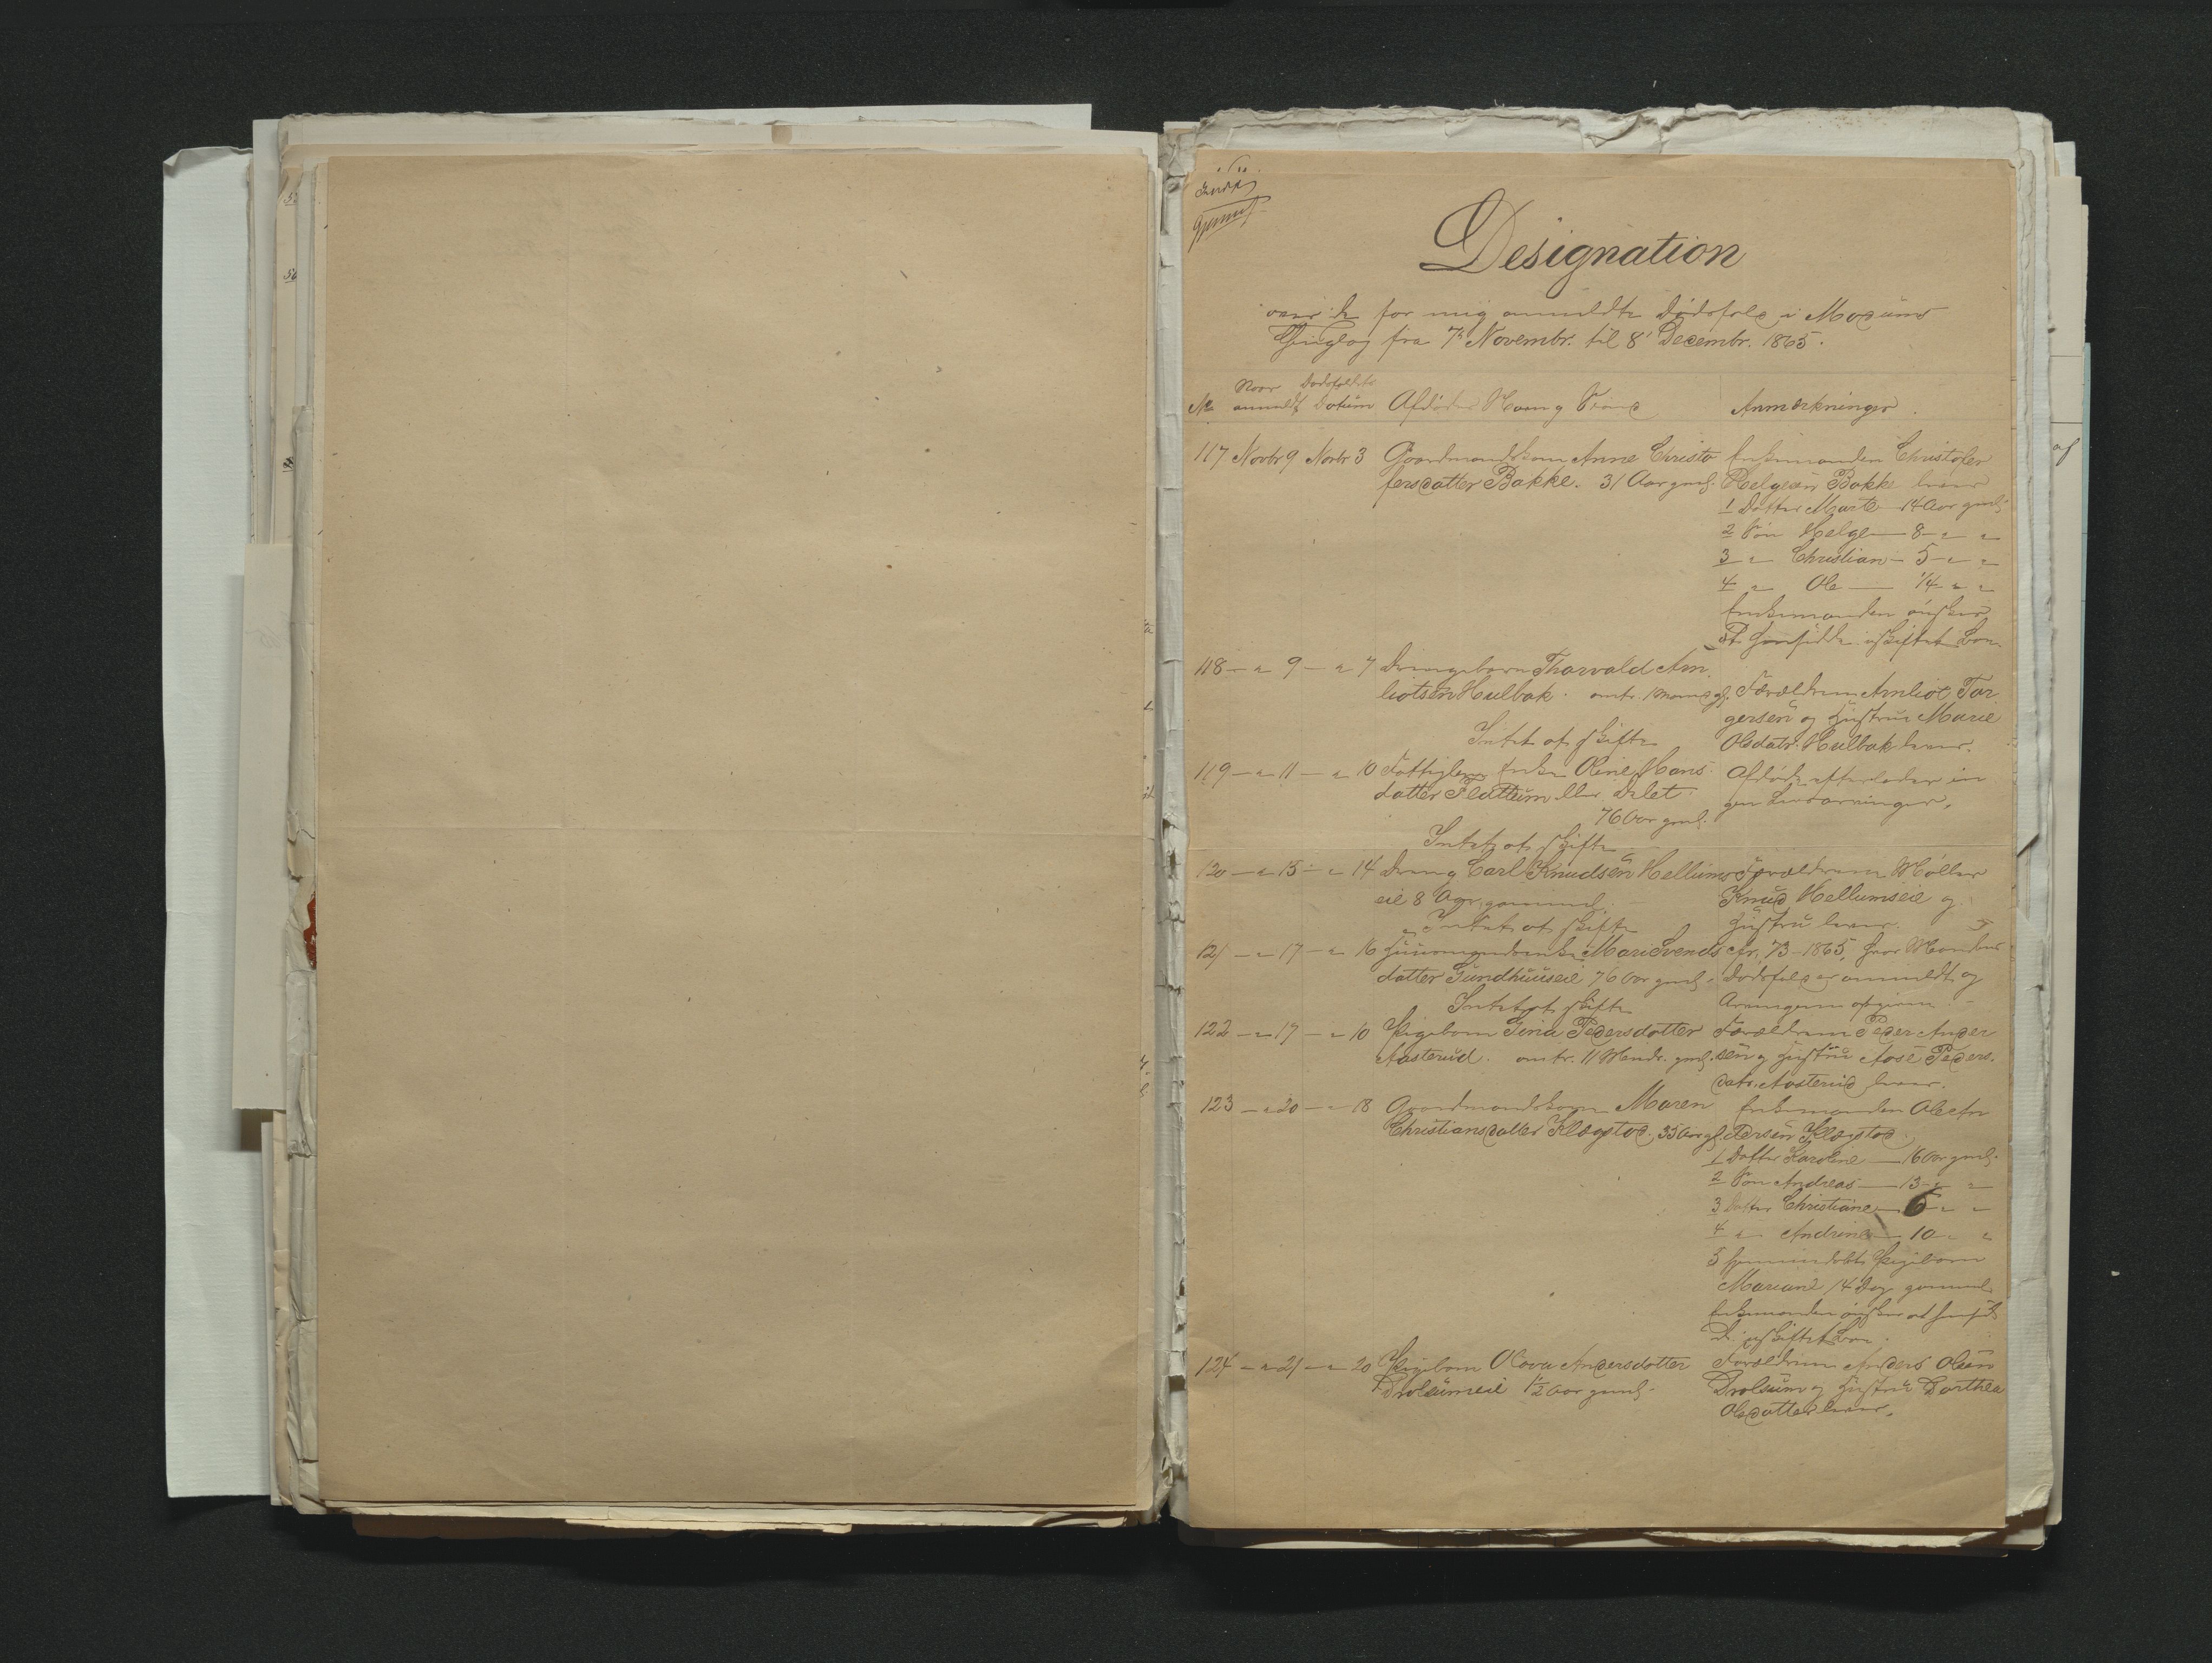 Designation
over de for mig anmeldte Dødsfald i Modums
Thinglag fra 7de Novembr. til 8de Decembr. 1865.
No. Naar anmeldt Dødsfaldets Datum Afdødes Navn og Anmærkninger
117 Novbr 9 Novbr 3 Gaardmandskone Anne Christo
fersdatter Bakke. 31 Aar gml.
Enkemanden Christofer
Helgesen Bakke lever
1 Datter Marte 14 Aar gml.
2 Søn Helge — 8 " "
3 " Christian — 5 " "
4 " Ole — 1/4 " "
Enkemanden ønsker
at hensidde i uskiftet Bo
118 — " 9 — " 7 Drengebarn Thorvald Arn
liotsen Hulbak. omtr. 1 Maaned gl.
Intet at skifte
Forældrene Arnliot Tor
gersen og Hustru Marie
Olsdatr. Hulbak lever.
119 — " 11 — " 10 Fattiglem Enke Oline Hans
datter Flattum eller Dalet.
76 Aar gml.
Intet at skifte
Afdøde efterlader in
gen Livsarvinger.
120 — " 15 — " 14 Dreng Carl Knudsen Hellums
eie 8 Aar gammel.
Intet at skifte
Forældrene Møller
Knud Hellumseie og
Hustru lever.
121 — " 17 — " 16 Huusmandsenke Marie Svends
datter Gundhuuseie 76 Aar gml.
Intet at skifte
cfr. 73 - 1865, hvor Mandens
Dødsfald er anmeldt og
Arvingerne opgivne.
122 — " 17 — " 10 Pigebarn Gina Pedersdatter
Aasterud. omtr. 11 Maadr. gml.
Forældrene Peder Ander
sen og Hustru Aase Peders.
datr. Aasterud lever.
123 — " 20 — " 18 Gaardmandskone Maren
Christiansdatter Klægstad. 35 Aar gl.
Enkemanden Ole An
dersen Klægstad.
1 Datter Karoline — 16 Aar gml.
2 Søn Andreas — 13 " "
3 Datter Christiane — 6 " "
4 " Andrine — 10 " "
5 hjemmedøbt Pigebarn
Mariane 14 Dag gammel
Enkemanden ønsker at hensid
de i uskiftet Bo.
124 — " 21 — " 20 Pigebarn Olava Andersdatter
Drolsumeie 1 1/2 Aar gml.
Forældrene Anders Olsen
Drolsum og Hustru Dorthea
Olsdatter lever.